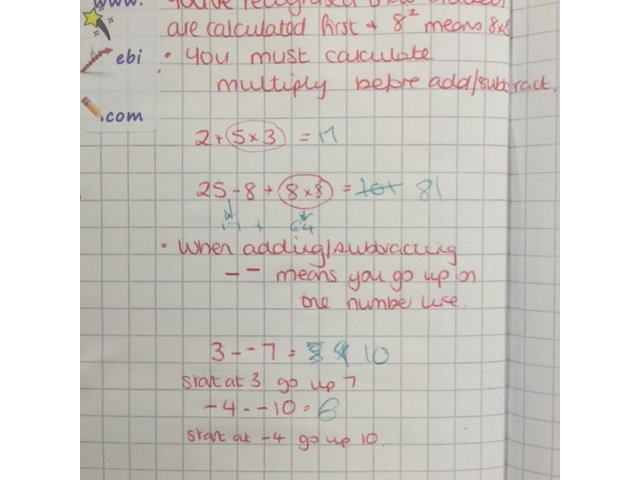 www.
are calculated first + 8² means 8x8
ebi • you must calculate
multiply before add/subtract.
.com
2 + 5 x 3 = 17
25 - 8 + 8 x 8 = 81
17 + 64
• When adding/subtracting
- - means you go up on
the number line.
3 - - 7 = 10
start at 3 go up 7
-4 - -10 = 6
start at -4 go up 10.